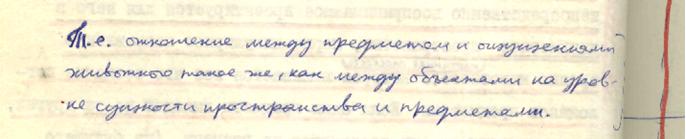 Т.е. отношение между предметом и ощущениями
животного такое же, как между объектами на уров-
не сущности пространства и предметами.